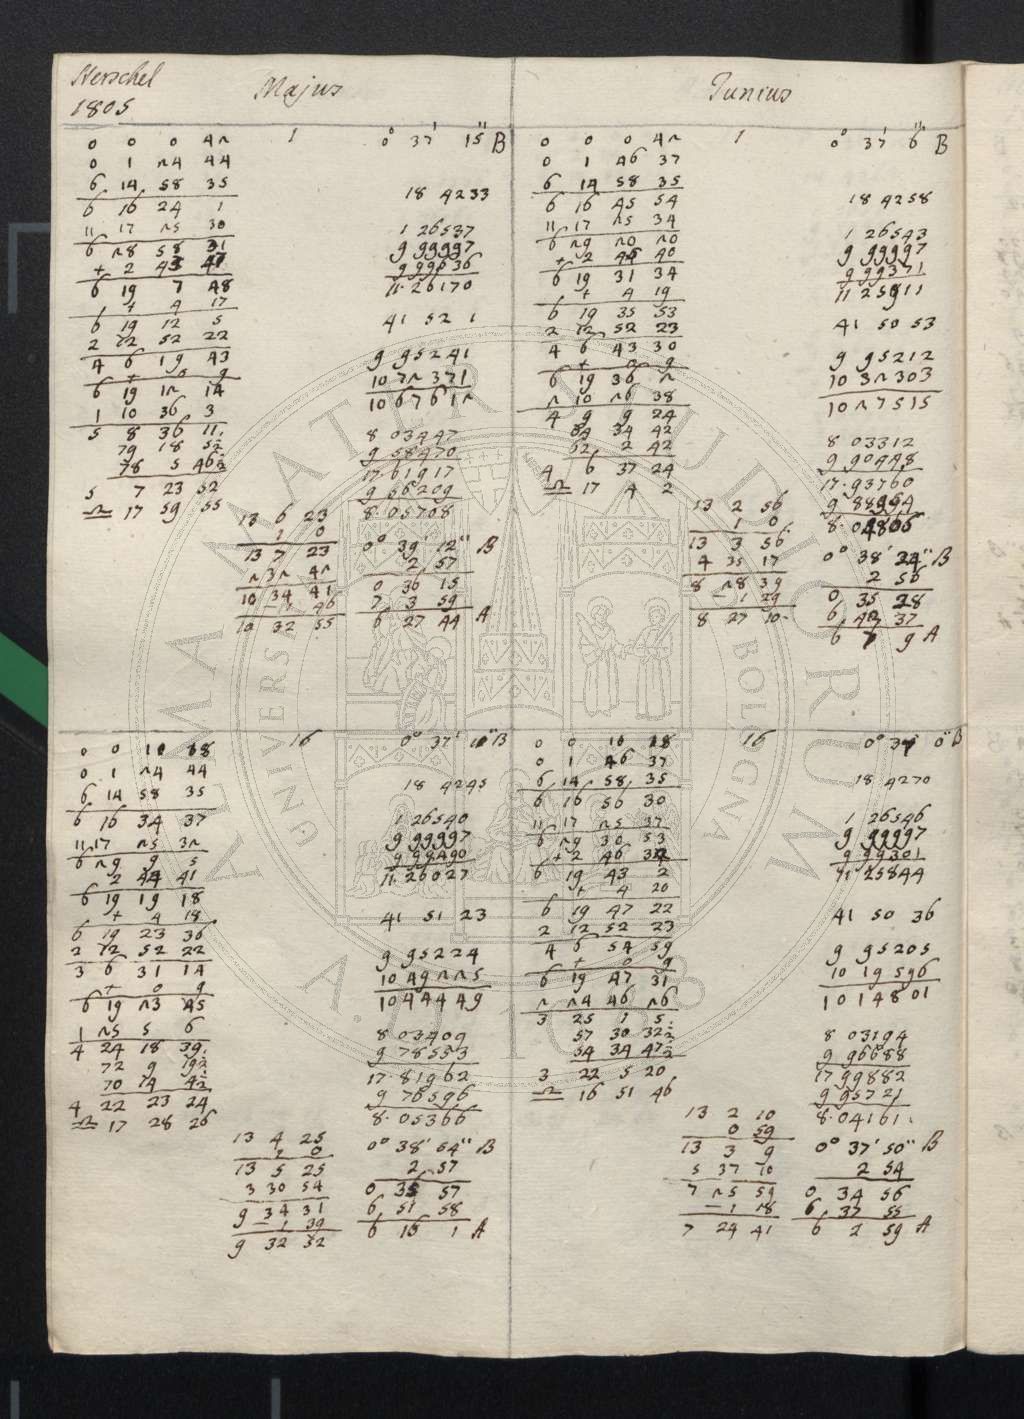 Herschel
1805
Majus
0 0 0 42
1
0° 37' 15" B
0 1 24 44
6 14 58 35
18 4233
6 16 24 1
11 17 25 30
1 26537
6 28 58 31
9 99997
+ 2 43 47
9 99636
6 19 7 48
11.26170
+ 4 17
6 19 12 5
41 52 1
2 12 52 22
4 6 19 43
9 95241
+ 0 9
10 72371
6 19 12 14
10 67612
1 10 36 3
5 8 36 11.
8 03447
79 18 5½
9 58470
78 5 46½
17.61917
5 7 23 52
9 56209
♎ 17 59 55
8.05708
13 6 23
1 0
13 7 23
0° 39' 12" B
2 57
10 34 41
0 36 15
- 1 46
7 3 59
10 32 55
6 27 44 A
Junius
0 0 0 42
1
0° 37' 6" B
0 1 46 37
6 14 58 35
18 4258
6 16 45 54
11 17 25 34
1 26543
6 29 20 20
9 99997
+ 2 46 40
9 99371
6 19 31 34
11 25911
+ 4 19
6 19 35 53
41 50 53
2 12 52 23
4 6 43 30
9 95212
+ 0 9
10 32303
6 19 36 2
10 27515
2 10 26 38
4 9 9 24
54 34 42
8 03312
52 2 42
9 90448
4 6 37 24
17.93760
♎ 17 4 2
13 2 56
1 0
8.04806
13 3 56
0° 38' 24" B
4 35 17
2 56
8 28 39
0 35 28
- 1 29
6 42 37
8 27 10
6 7 9 A
16
0° 37' 10" B
0 1 24 44
6 14 58 35
18 4245
6 16 34 37
11 17 25 32
1 26540
6 29 9 5
9 99997
2 44 41
9 99490
6 19 19 18
11.26027
+ 4 18
6 19 23 36
41 51 23
2 12 52 22
3 6 31 14
9 95224
+ 0 9
10 49225
6 19 23 45
10 44449
1 25 5 6
4 24 18 39.
8 03409
72 9 19½
9 78553
70 14 4½
17.81962
4 22 23 24
9 76596
♎ 17 28 26
8.05366
13 4 25
1 0
0° 38' 54" B
13 5 25
2 57
3 30 54
0 35 57
9 34 31
6 51 58
- 1 39
6 15 1 A
9 32 52
0 0 10 18
16
0° 37' 0" B
0 1 46 37
6 14 58 35
18 4270
6 16 56 30
11 17 25 37
1 26546
6 29 30 53
9 99997
9 99301
6 19 43 2
11 25844
+ 4 20
6 19 47 22
41 50 36
2 12 52 23
4 6 54 59
9 95205
+ 0 9
10 19596
6 19 47 31
10 14801
2 24 46 26
3 25 1 5.
8 03194
57 30 32½
9 96688
54 34 47½
17 99882
3 22 5 20
9 95721
♎ 16 51 46
8.04161.
13 2 10
0 59
13 3 9
0° 37' 50" B
5 37 10
2 54
7 25 59
0 34 56
- 1 18
6 37 55
7 24 41
6 2 59 A
ALMA MATER STUDIORUM
UNIVERSITÀ DI BOLOGNA
A.D. 1088